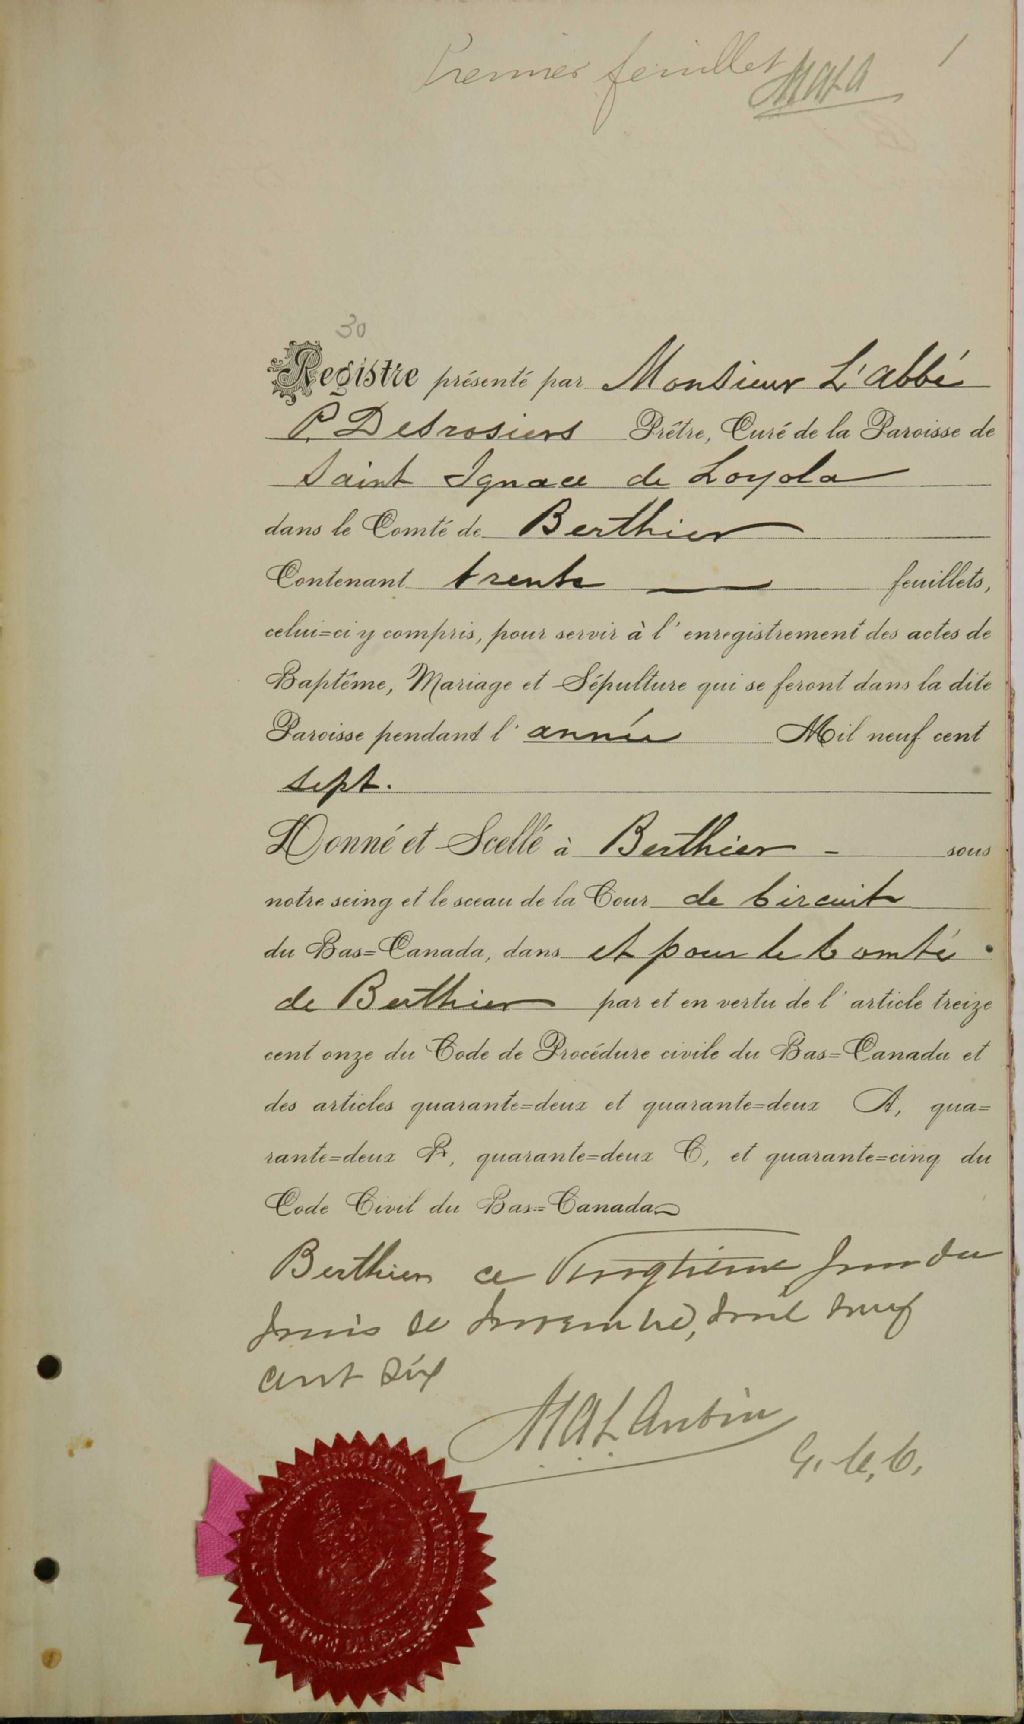 Premier feuillet MALA 1
30
Registre présenté par Monsieur L'abbé
P. Desrosiers Prêtre, Curé de la Paroisse de
Saint Ignace de Loyola
dans le Comté de Berthier
Contenant trente feuillets,
celui=ci y compris, pour servir à l'enregistrement des actes de
Baptême, Mariage et Sépulture qui se feront dans la dite
Paroisse pendant l'année Mil neuf cent
sept.
Donné et Scellé à Berthier - sous
notre seing et le sceau de la Cour de Circuit
du Bas=Canada, dans et pour le Comté
de Berthier par et en vertu de l'article treize
cent onze du Code de Procédure civile du Bas=Canada et
des articles quarante=deux et quarante=deux A, qua=
rante=deux B, quarante=deux C, et quarante=cinq du
Code Civil du Bas=Canada
Berthier ce vingtième jour du
mois de novembre, mil neuf
cent six
MALAubin
G. C. C.